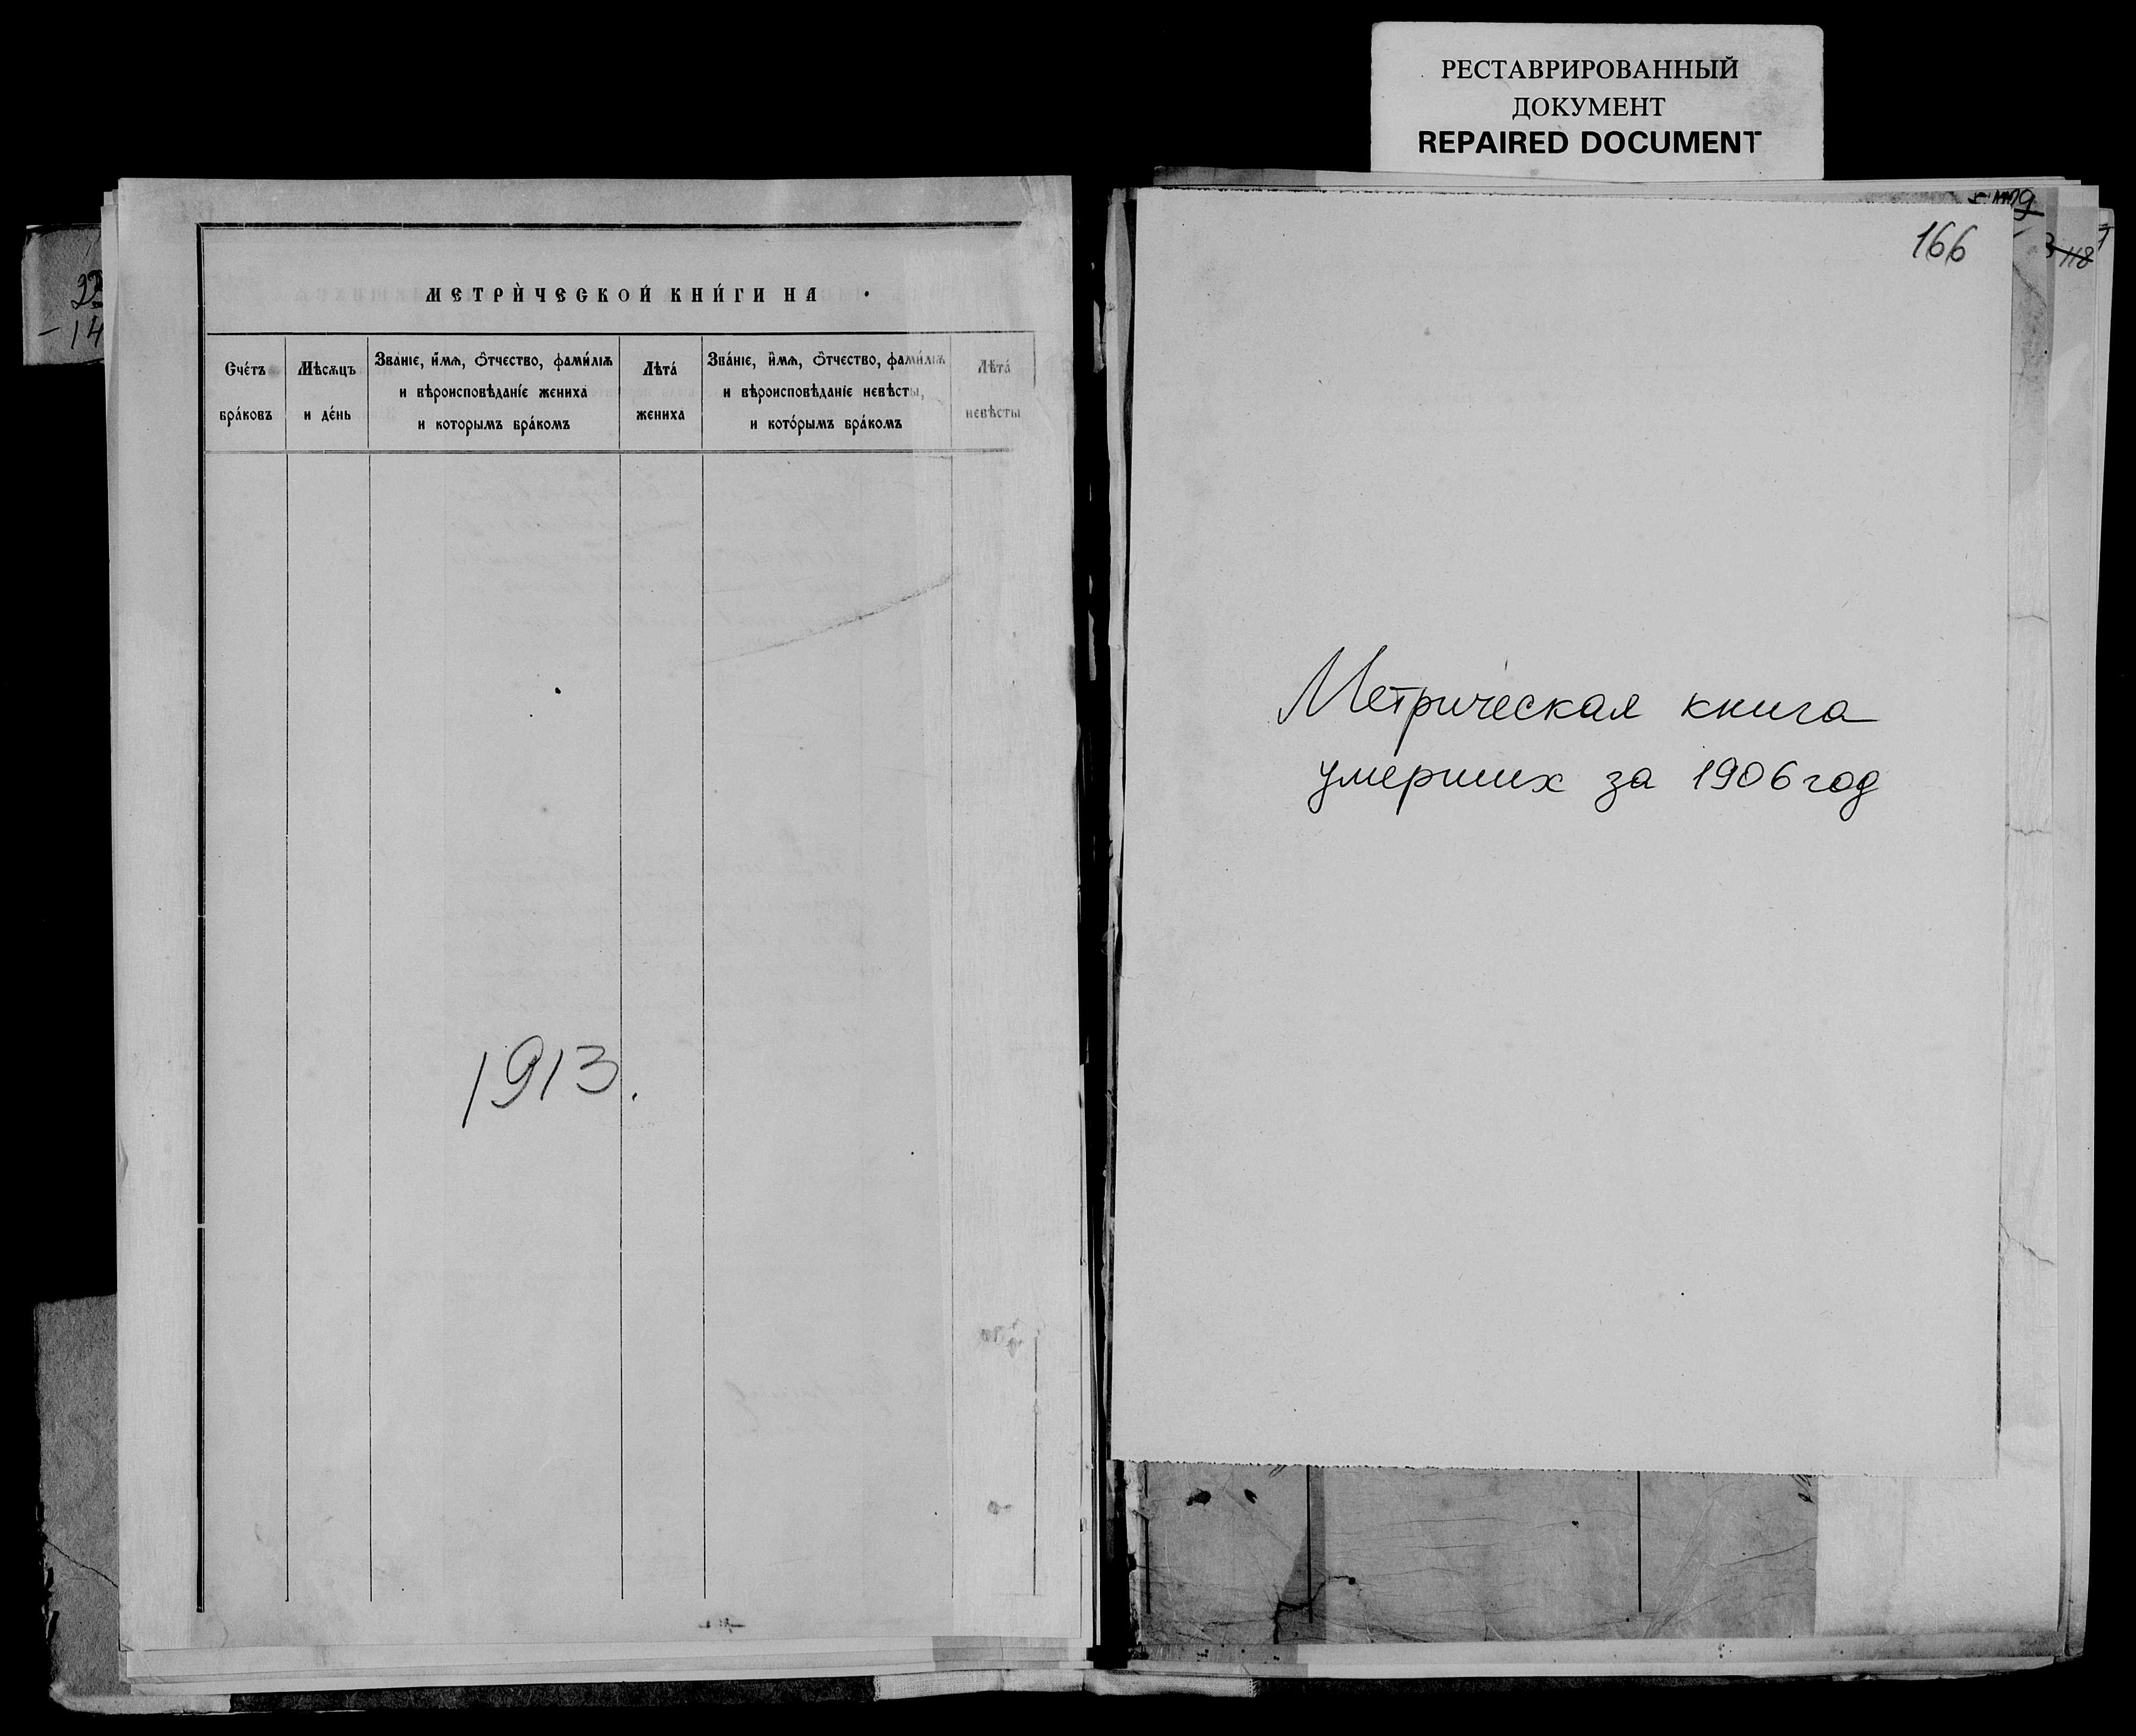 РЕСТАВРИРОВАННЫЙ
ДОКУМЕНТ
REPAIRED DOCUMENT
22
- 14
МЕТРИ́ЧЕСКОЙ КНИ́ГИ НА
Сче́тъ
бра́ковъ
Мѣсѧцъ
и де́нь
Зва́нїе, и҆́мѧ, ѻ҆́тчество, фами́лїѧ
и вѣроисповѣда́нїе жениха
и которымъ бра́комъ
Лѣта́
жениха
Зва́нїе, и҆́мѧ, ѻ҆́тчество, фами́лїѧ
и вѣроисповѣда́нїе невѣсты,
и кото́рымъ бра́комъ
Лѣта́
невѣсты
1913.
166
118
Метрическая книга
умерших за 1906 год